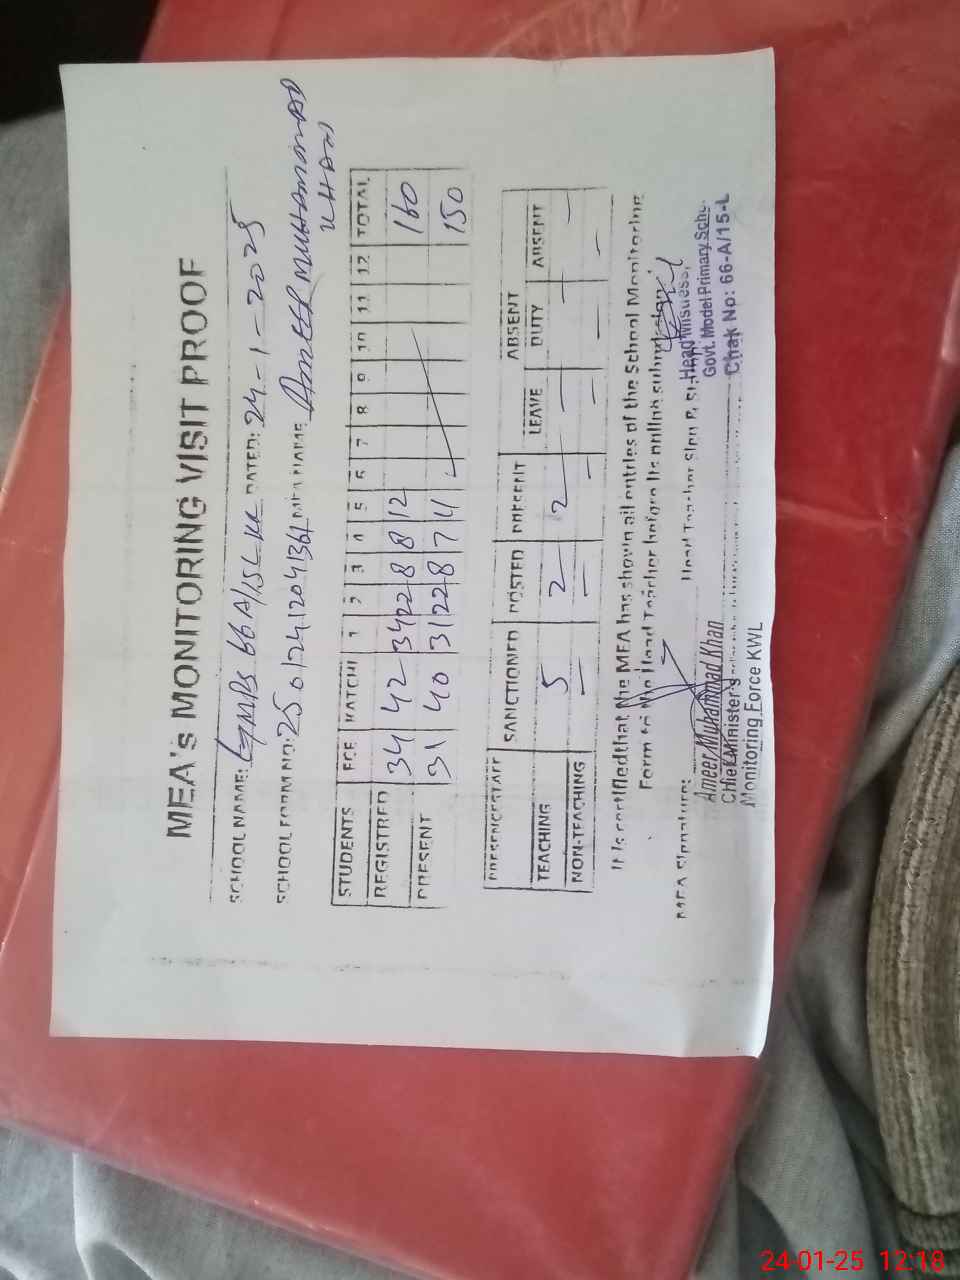 MEA's MONITORING VISIT PROOF
SCHOOL NAME: GMPS 66 A/15L DATED: 24-1-2025
SCHOOL FORM NO: 250124120413 MEA NAME AMEER MUHAMMAD
KHAN
STUDENTS ECE KATCHI 1 2 3 4 5 6 7 8 9 10 11 12 TOTAL
REGISTRED 34 42 34 22 8 8 12 160
PRESENT 31 40 31 22 8 7 11 150
ABSENT
PRESENCE STAFF SANCTIONED POSTED PRECENT LEAVE DUTY ABSENT
TEACHING 5 2 2 — — —
NON-TEACHING — — — — — —
It is certified that the MEA has shown all entries of the School Monitoring
Form to the Head Teacher before its online submission
MEA Signature: Head Teacher Sign & Stamp
Ameer Muhammad Khan
Chief Minister's
Monitoring Force KWL
Head Misuess,
Govt. Model Primary Scho.
Chak No: 66-A/15-L
24-01-25 12:18